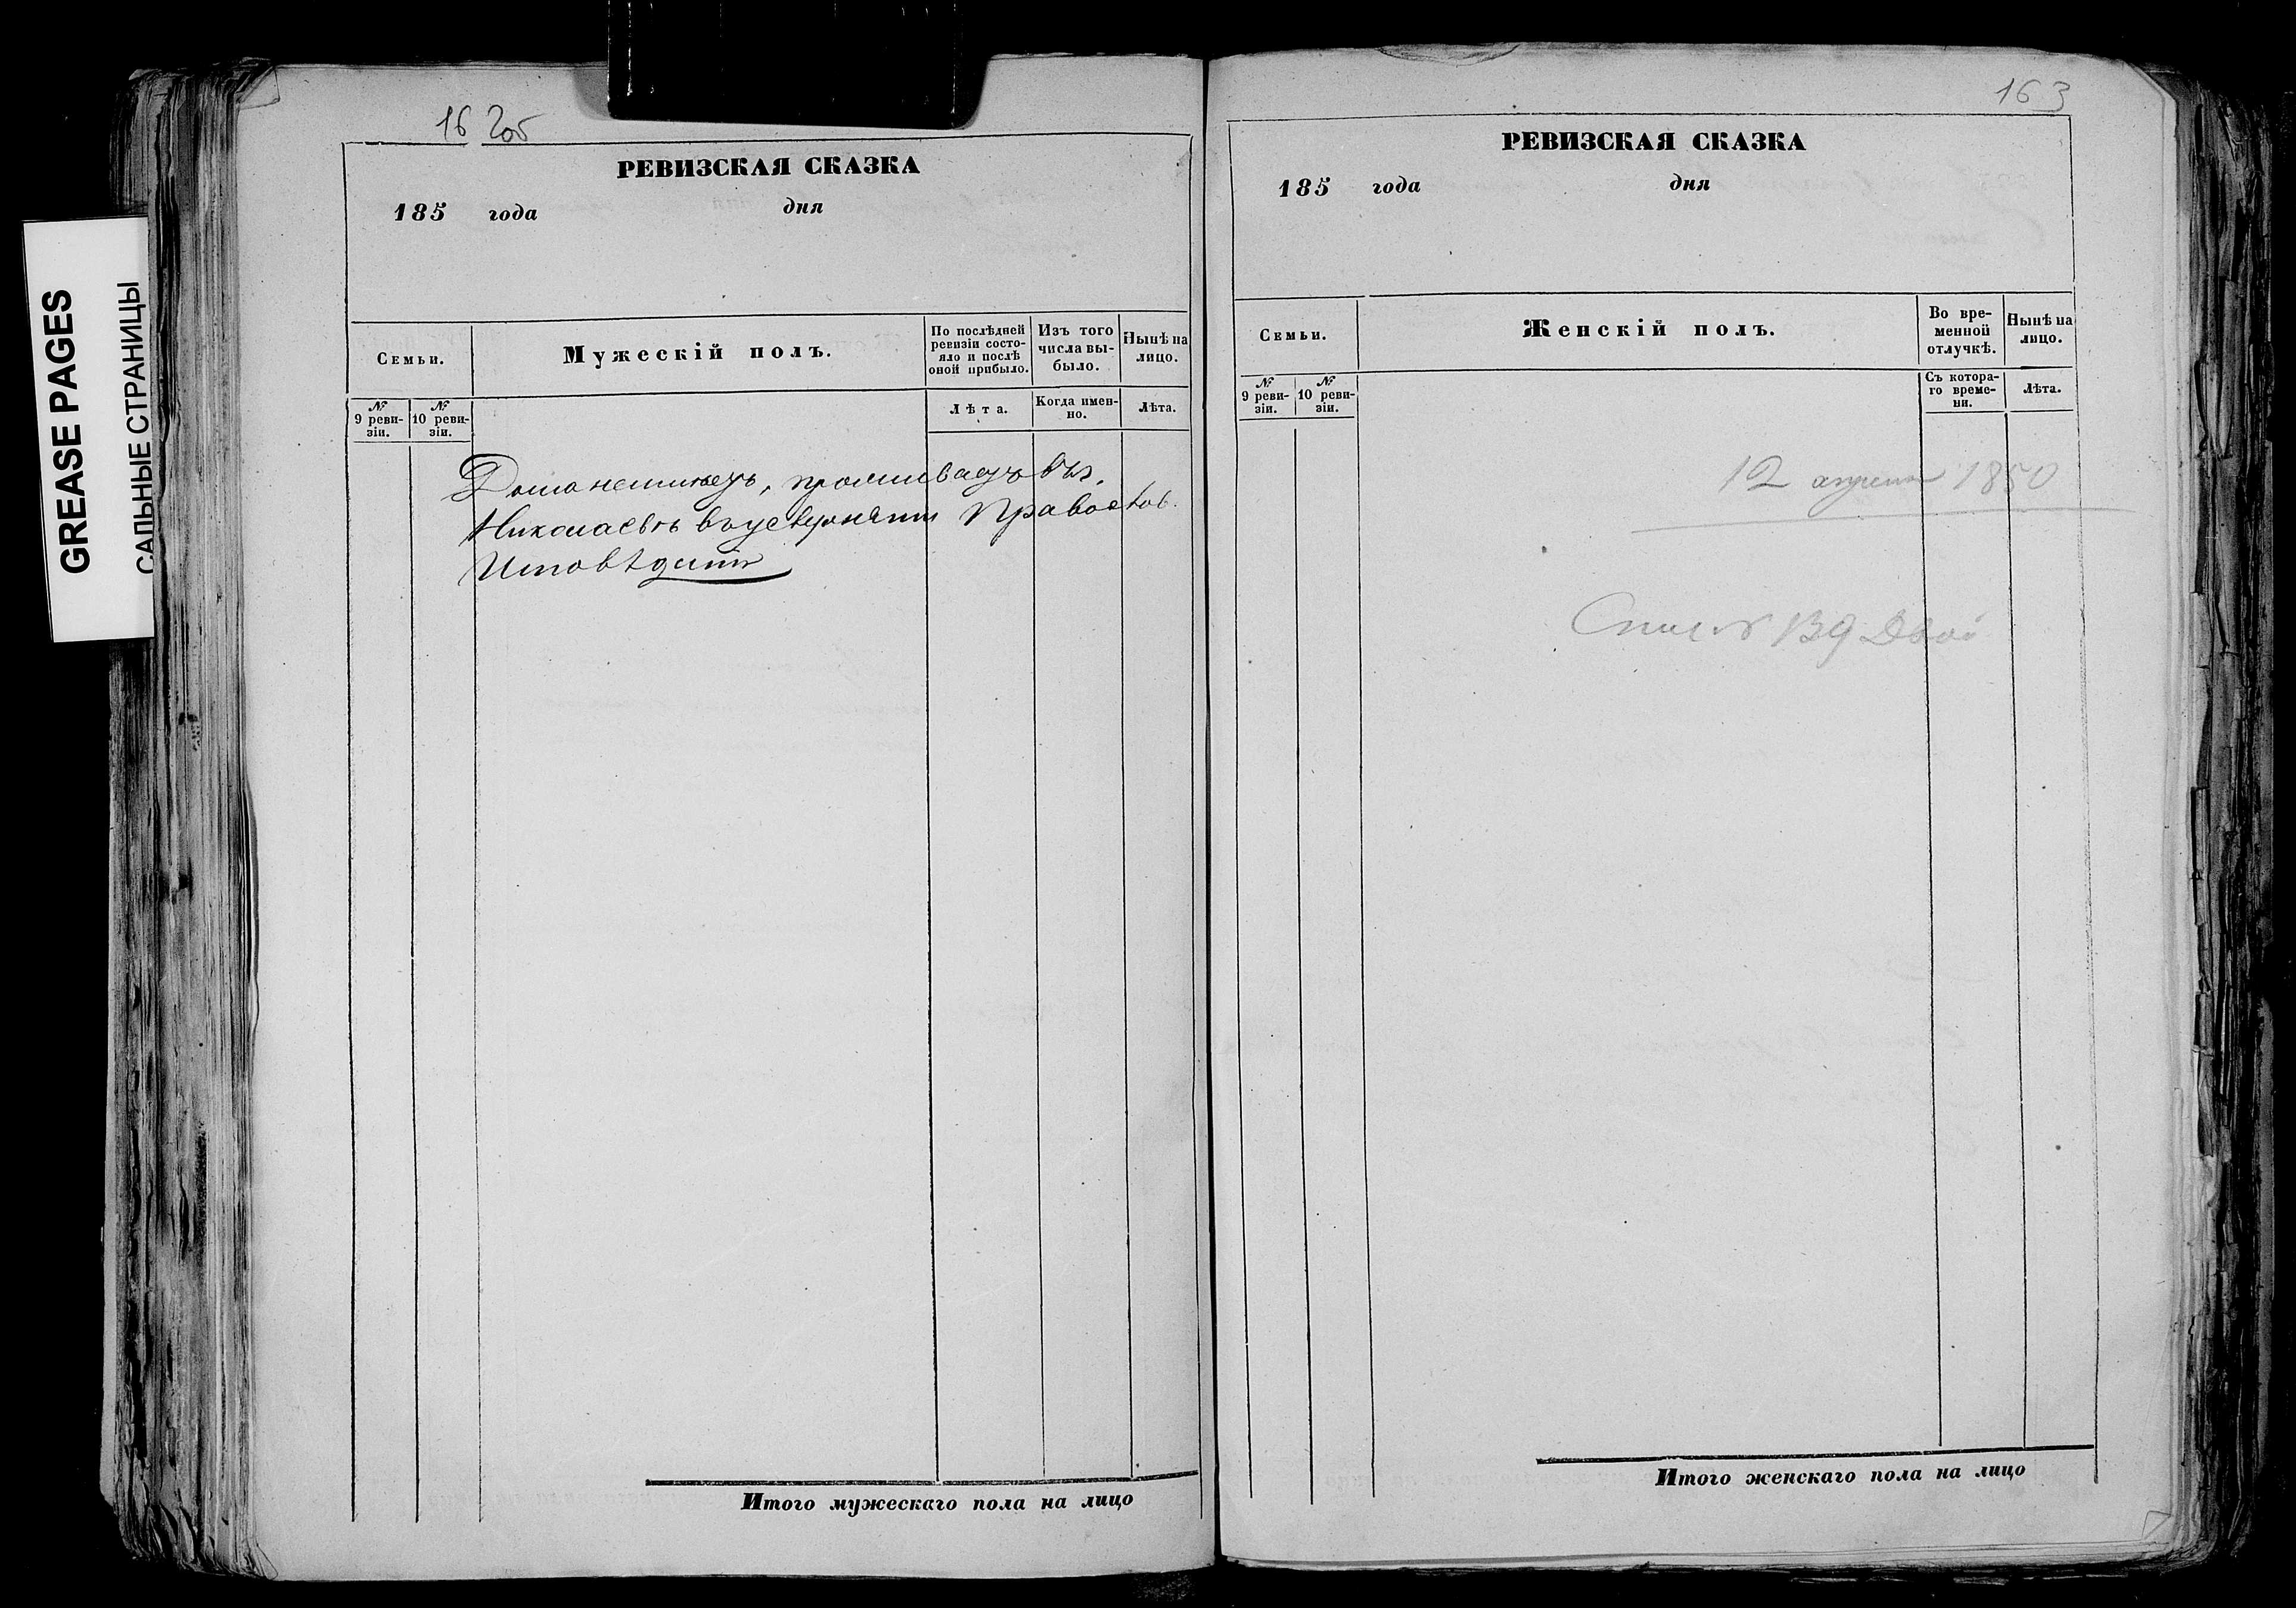 GREASE PAGES
САЛЬНЫЕ СТРАНИЦЫ
162об
РЕВИЗСКАЯ СКАЗКА
185 года дня
Семьи.
Мужескій полъ.
По послѣдней ревизіи состояло и послѣ оной прибыло.
Изъ того числа выбыло.
Нынѣ на лицо.
№ 9 ревизіи.
№ 10 ревизіи.
Лѣта.
Когда именно.
Лѣта.
Николаевъ
Итого мужескаго пола на лицо
163
РЕВИЗСКАЯ СКАЗКА
185 года дня
Семьи.
Женскій полъ.
Во временной отлучкѣ.
Нынѣ на лицо.
№ 9 ревизіи.
№ 10 ревизіи.
Съ котораго времени.
Лѣта.
12 апреля 1850
Итого женскаго пола на лицо